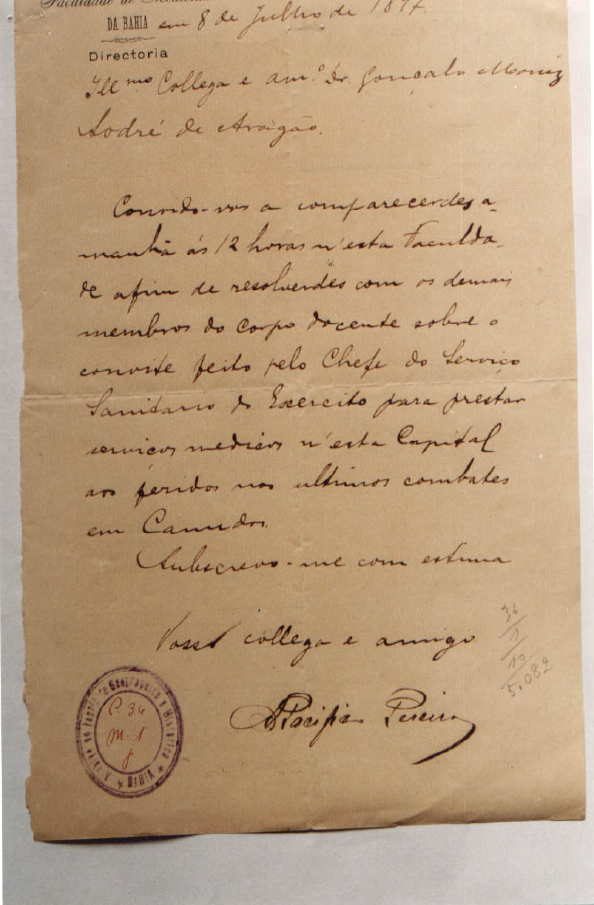 Faculdade de Medicina
DA BAHIA em 8 de Julho de 1897.
Directoria
Ill.mo Collega e am.o Dr Gonçalo Moniz
Sodré de Aragão.
Convido-vos a comparecerdes a-
manhã ás 12 horas n'esta Faculda-
de afim de resolverdes com os demais
membros do corpo docente sobre o
convite feito pelo Chefe do Serviço
Sanitario do Exercito para prestar
serviços medicos n'esta Capital
aos feridos nos ultimos combates
em Canudos.
Subscrevo-me com estima
Vosso collega e amigo
A Pacifico Pereira
34
1
10
5.082
P. 34
M. 1
8